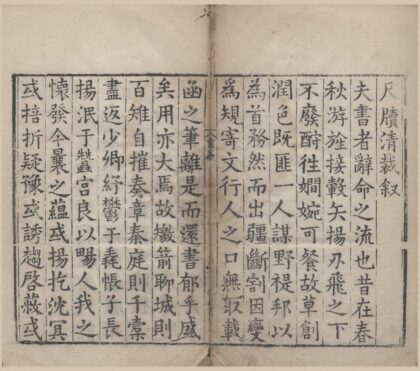 尺牘清裁叙
夫書者辭命之流也昔在春
秋游旌接轂矢揚刃飛之下
不廢酧徃嫺婉可餐故草創
潤色既匪一人謀野禔邦以
為首務然而出疆斷割因變
為規寄文行人之口無取載
函之筆離是而還書郁乎盛
矣用亦大焉故繳箭聊城則
百雉自摧奏章秦庭則千橐
盡返少卿紓鬱于毳帳子長
揚泯于蠶宮良以暢人我之
懷發今曩之蘊或揚扢沈冥
或掊折疑豫或誘趨啓蔽或